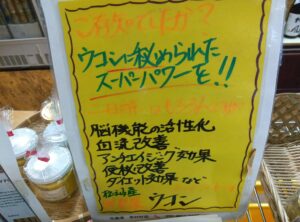 ご存知でしたか?
ウコンに秘められた
スーパーパワーを!!
脳機能の活性化
血流改善
アンチエイジング効果
便秘改善
ダイエット効果 など
ウコン